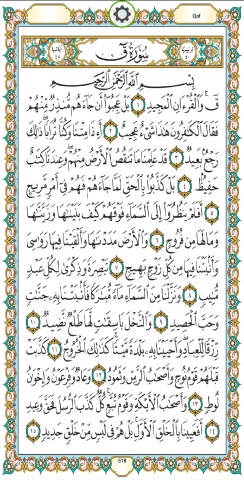 Qaf
سُورَةُ قٓ
بِسْمِ اللَّهِ الرَّحْمَٰنِ الرَّحِيمِ
قٓ ۚ وَالْقُرْءَانِ الْمَجِيدِ ١ بَلْ عَجِبُوٓا أَن جَآءَهُم مُّنذِرٌ مِّنْهُمْ
فَقَالَ الْكَٰفِرُونَ هَٰذَا شَىْءٌ عَجِيبٌ ٢ أَءِذَا مِتْنَا وَكُنَّا تُرَابًا ۖ ذَٰلِكَ
رَجْعٌۢ بَعِيدٌ ٣ قَدْ عَلِمْنَا مَا تَنقُصُ الْأَرْضُ مِنْهُمْ ۖ وَعِندَنَا كِتَٰبٌ
حَفِيظٌۢ ٤ بَلْ كَذَّبُوا بِالْحَقِّ لَمَّا جَآءَهُمْ فَهُمْ فِىٓ أَمْرٍ مَّرِيجٍ
٥ أَفَلَمْ يَنظُرُوٓا إِلَى السَّمَآءِ فَوْقَهُمْ كَيْفَ بَنَيْنَٰهَا وَزَيَّنَّٰهَا
وَمَا لَهَا مِن فُرُوجٍ ٦ وَالْأَرْضَ مَدَدْنَٰهَا وَأَلْقَيْنَا فِيهَا رَوَٰسِىَ
وَأَنۢبَتْنَا فِيهَا مِن كُلِّ زَوْجٍۭ بَهِيجٍ ٧ تَبْصِرَةً وَذِكْرَىٰ لِكُلِّ عَبْدٍ
مُّنِيبٍ ٨ وَنَزَّلْنَا مِنَ السَّمَآءِ مَآءً مُّبَٰرَكًا فَأَنۢبَتْنَا بِهِۦ جَنَّٰتٍ
وَحَبَّ الْحَصِيدِ ٩ وَالنَّخْلَ بَاسِقَٰتٍ لَّهَا طَلْعٌ نَّضِيدٌ ١٠
رِّزْقًا لِّلْعِبَادِ ۖ وَأَحْيَيْنَا بِهِۦ بَلْدَةً مَّيْتًا ۚ كَذَٰلِكَ الْخُرُوجُ ١١ كَذَّبَتْ
قَبْلَهُمْ قَوْمُ نُوحٍ وَأَصْحَٰبُ الرَّسِّ وَثَمُودُ ١٢ وَعَادٌ وَفِرْعَوْنُ وَإِخْوَٰنُ
لُوطٍ ١٣ وَأَصْحَٰبُ الْأَيْكَةِ وَقَوْمُ تُبَّعٍ ۚ كُلٌّ كَذَّبَ الرُّسُلَ فَحَقَّ وَعِيدِ
١٤ أَفَعَيِينَا بِالْخَلْقِ الْأَوَّلِ ۚ بَلْ هُمْ فِى لَبْسٍ مِّنْ خَلْقٍ جَدِيدٍ ١٥
518